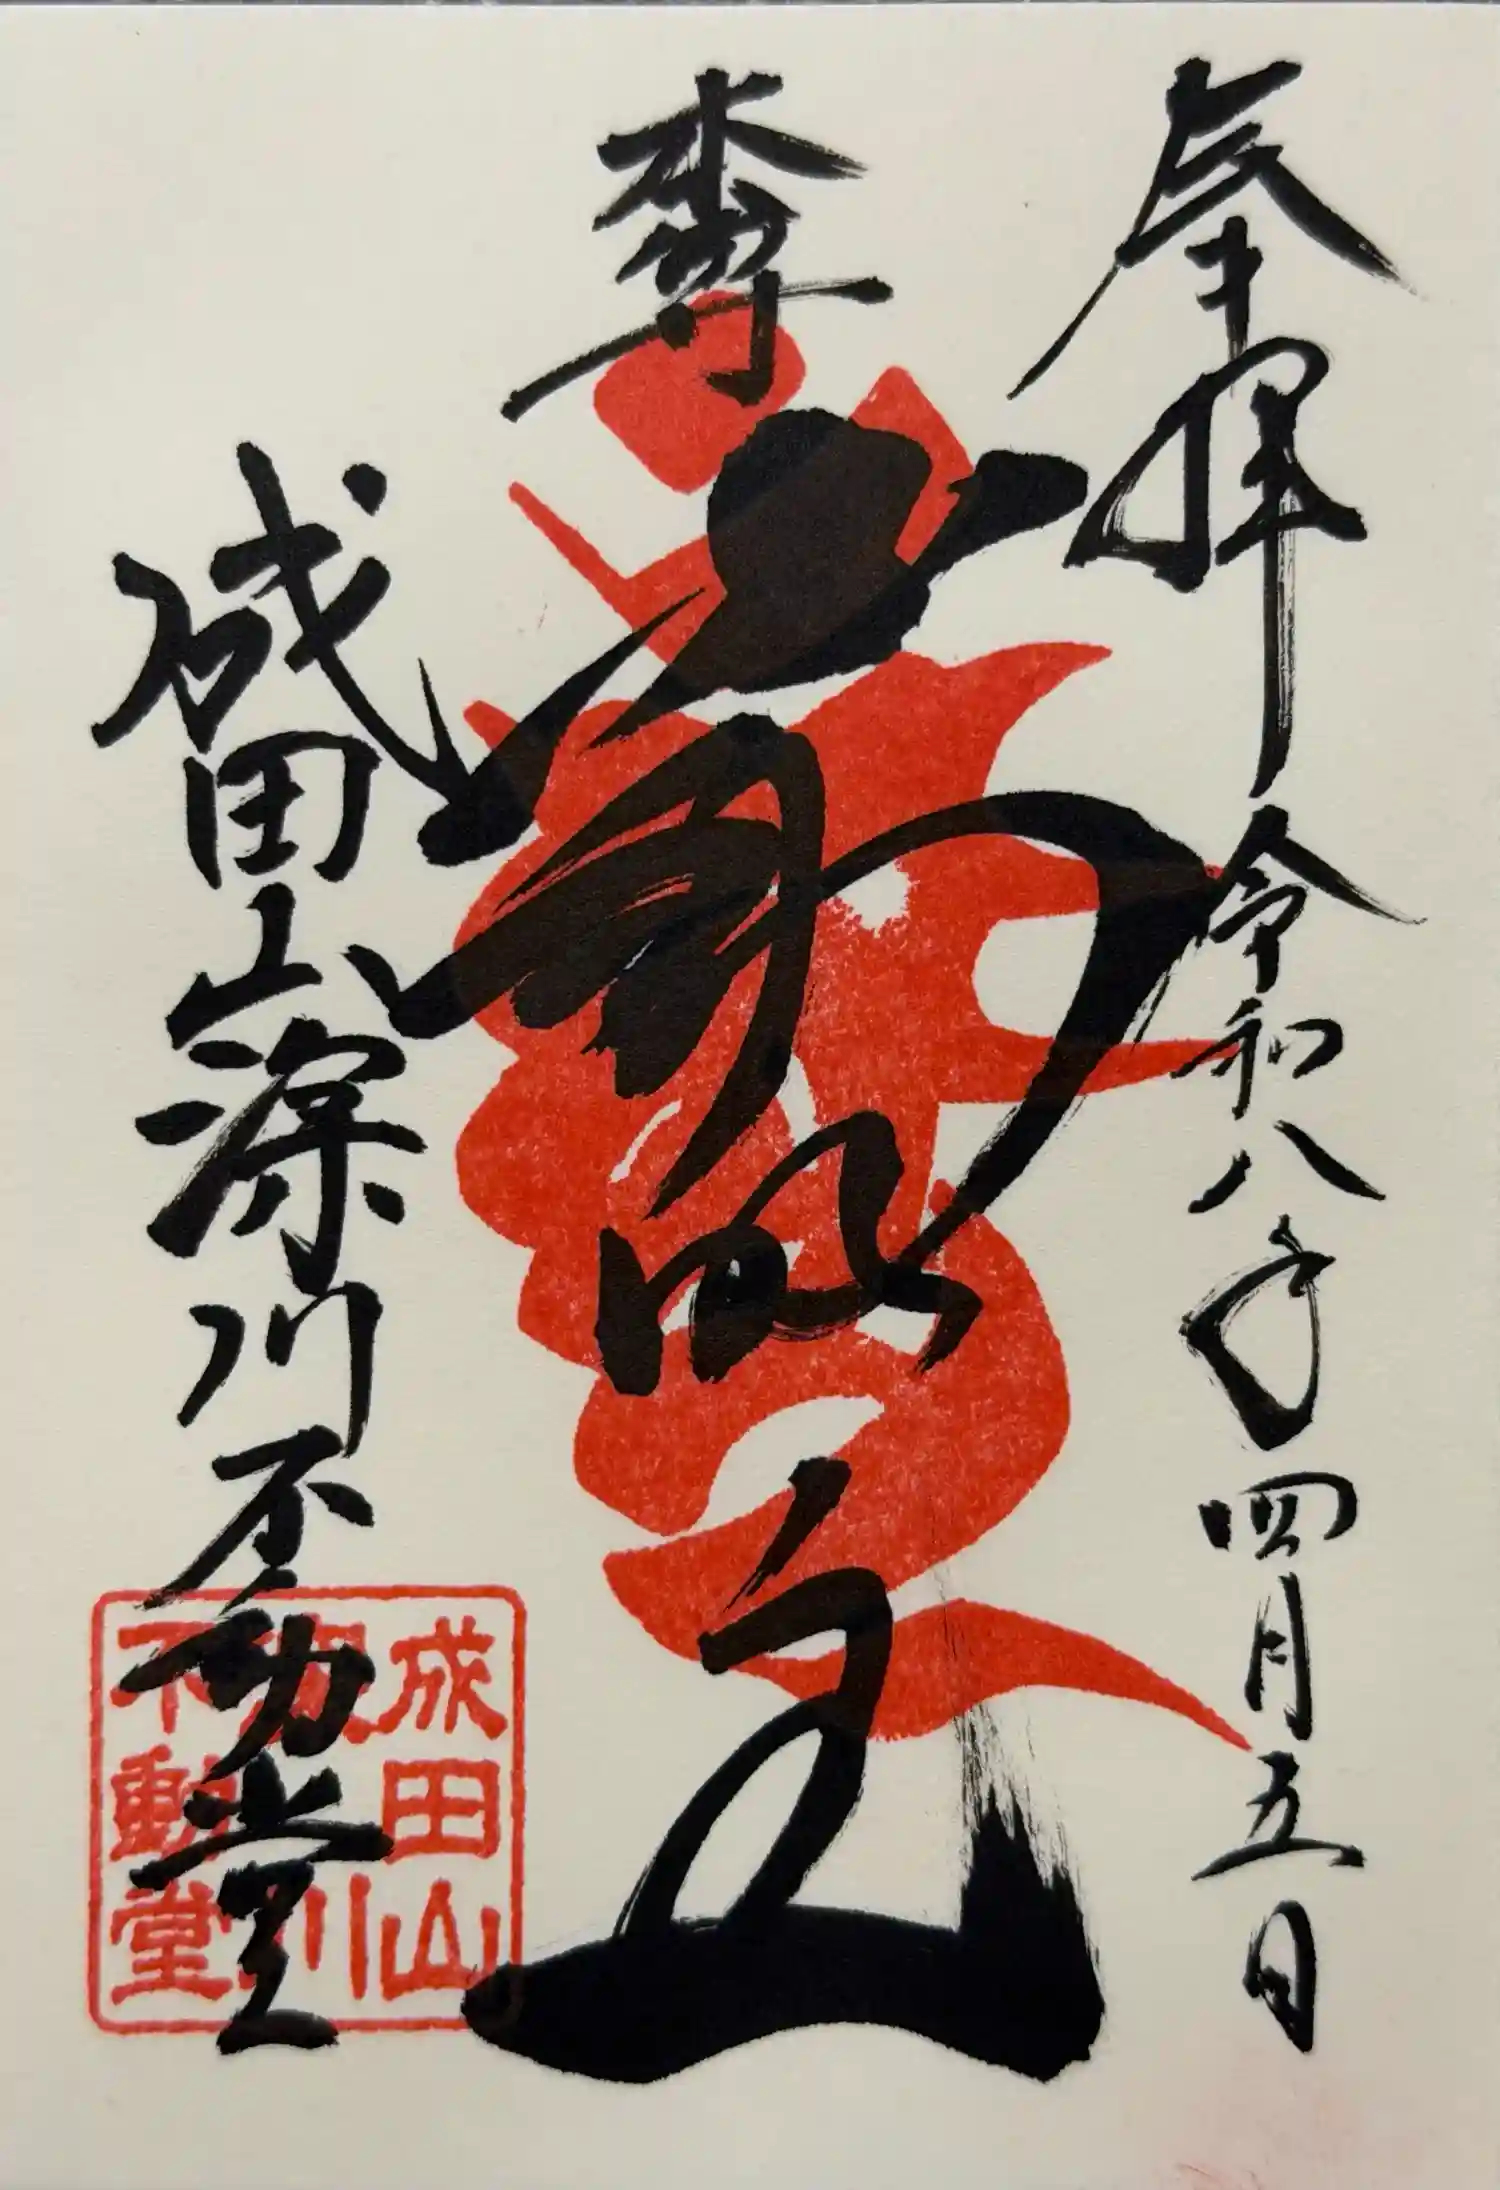 奉拝 令和八年四月五日
本尊
不動明王
成田山深川不動堂
成田山
深川
不動堂